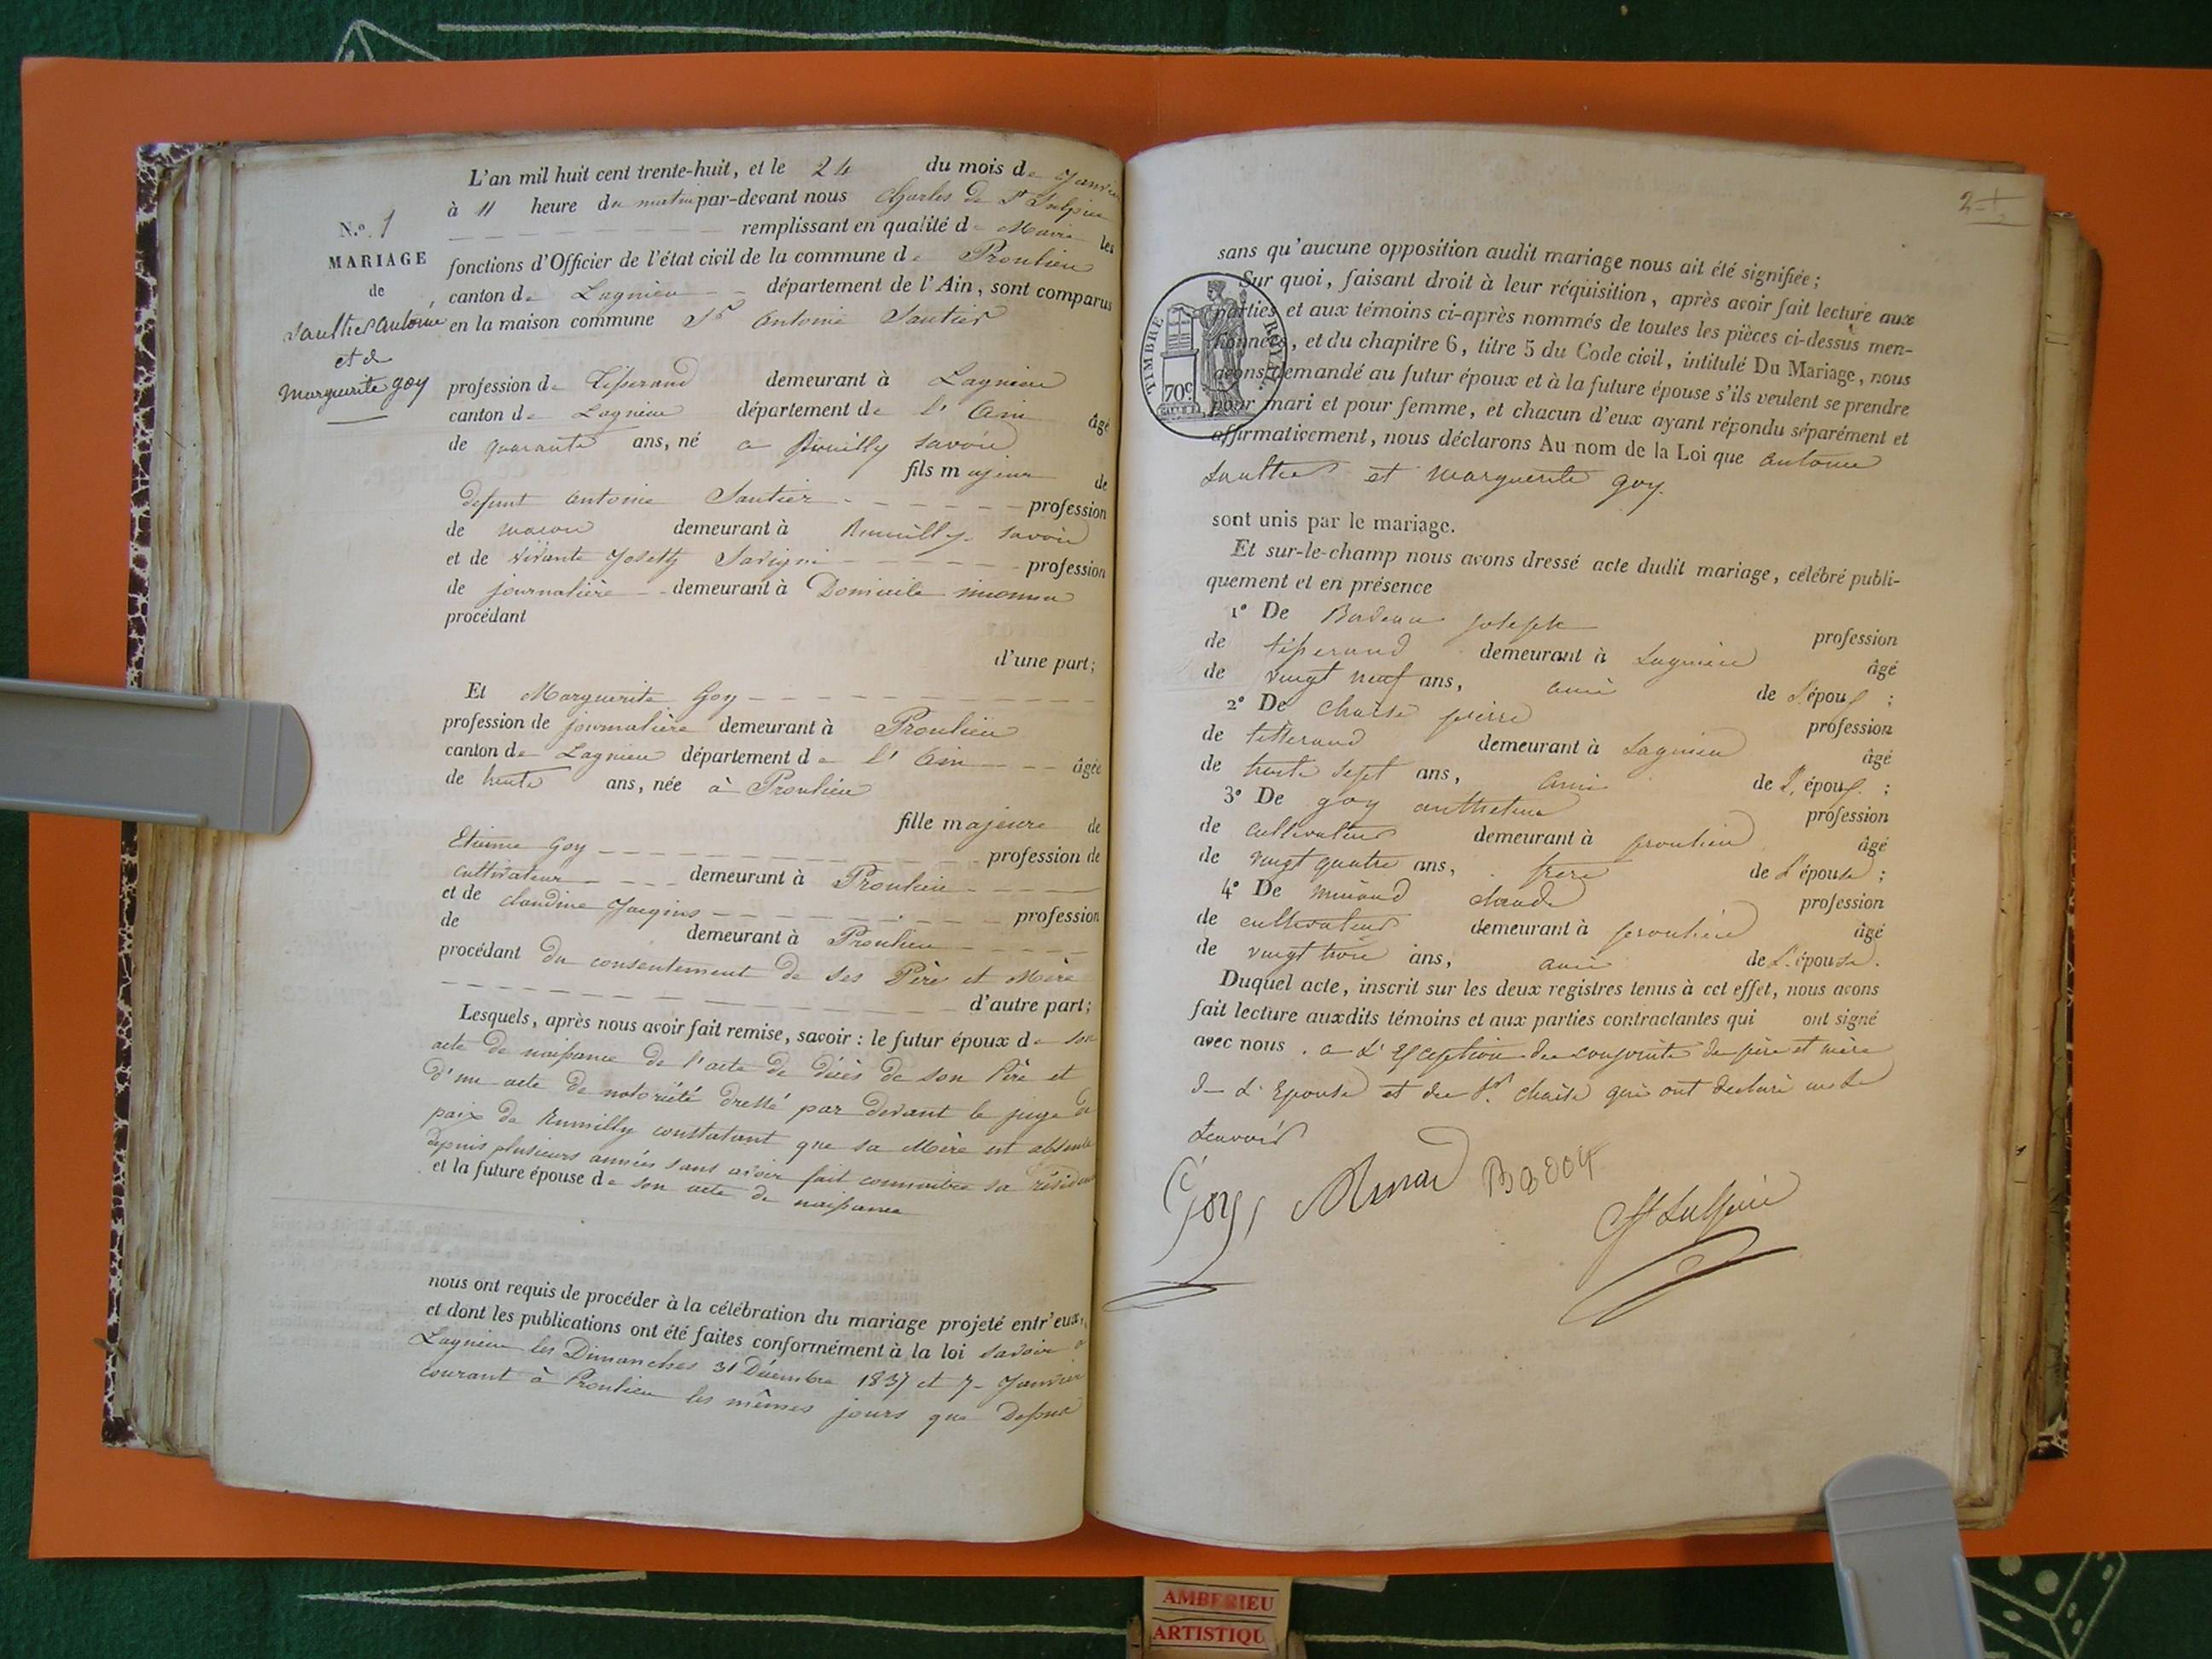 L'an mil huit cent trente-huit, et le 24 du mois de Janvier
à 11 heure du matin par-devant nous Charles de St Sulpice
remplissant en qualité de Maire les
fonctions d'Officier de l'état civil de la commune de Proulieu
canton de Lagnieu département de l'Ain, sont comparus
en la maison commune Sr Antoine Sautier
N.º 1
MARIAGE
de
Saultier Antoine
et de
Marguerite goy
profession de Tisserand demeurant à Lagnieu
canton de Lagnieu département de l'Ain âgé
de quarante ans, né a Rumilly Savoie
fils majeur de
defunt Antoine Sautier profession
de macon demeurant à Rumilly Savoie
et de vivante Joseth Savigni profession
de journalière demeurant à Domicile inconnu
procédant
d'une part;
Et Marguerite Goy
profession de journalière demeurant à Proulieu
canton de Lagnieu département de l'Ain âgée
de trente ans, née à Proulieu
fille majeure de
Etienne Goy profession de
cultivateur demeurant à Proulieu
et de Claudine Jacquins profession
de demeurant à Proulieu
procédant du consentement de ses Père et Mère
d'autre part;
Lesquels, après nous avoir fait remise, savoir : le futur époux de son
acte de naissance de l'acte de décès de son Père et
d'un acte de notoriété dressé par devant le juge de
paix de Rumilly constatant que sa Mère est absente
depuis plusieurs années sans avoir fait connaitre sa résidence
et la future épouse de son acte de naissance
nous ont requis de procéder à la célébration du mariage projeté entr'eux,
et dont les publications ont été faites conformément à la loi savoir à
Lagnieu les Dimanches 31 Décembre 1837 et 7 Janvier
courant à Proulieu les mêmes jours que Dessus
2
sans qu'aucune opposition audit mariage nous ait été signifiée;
Sur quoi, faisant droit à leur réquisition, après avoir fait lecture aux
parties et aux témoins ci-après nommés de toutes les pièces ci-dessus men-
tionnées, et du chapitre 6, titre 5 du Code civil, intitulé Du Mariage, nous
avons demandé au futur époux et à la future épouse s'ils veulent se prendre
pour mari et pour femme, et chacun d'eux ayant répondu séparément et
affirmativement, nous déclarons Au nom de la Loi que Antoine
Saultier et Marguerite goy
TIMBRE ROYAL
70c.
sont unis par le mariage.
Et sur-le-champ nous avons dressé acte dudit mariage, célébré publi-
quement et en présence
1º De joseph profession
de tisserand demeurant à Lagnieu âgé
de vingt neuf ans, ami de l'époux ;
2º De Chaise pierre profession
de tisserand demeurant à Lagnieu âgé
de trente sept ans, ami de l'époux ;
3º De goy anthelme profession
de cultivateur demeurant à proulieu âgé
de vingt quatre ans, frere de l'épouse ;
4º De minand claude profession
de cultivateur demeurant à proulieu âgé
de vingt trois ans, ami de l'épouse.
Duquel acte, inscrit sur les deux registres tenus à cet effet, nous avons
fait lecture auxdits témoins et aux parties contractantes qui ont signé
avec nous. a l'exception des conjoints des père et mère
de l'Epouse et du Sr. chaise qui ont declaré ne le
scavoir
Goy
AMBERIEU
ARTISTIQU